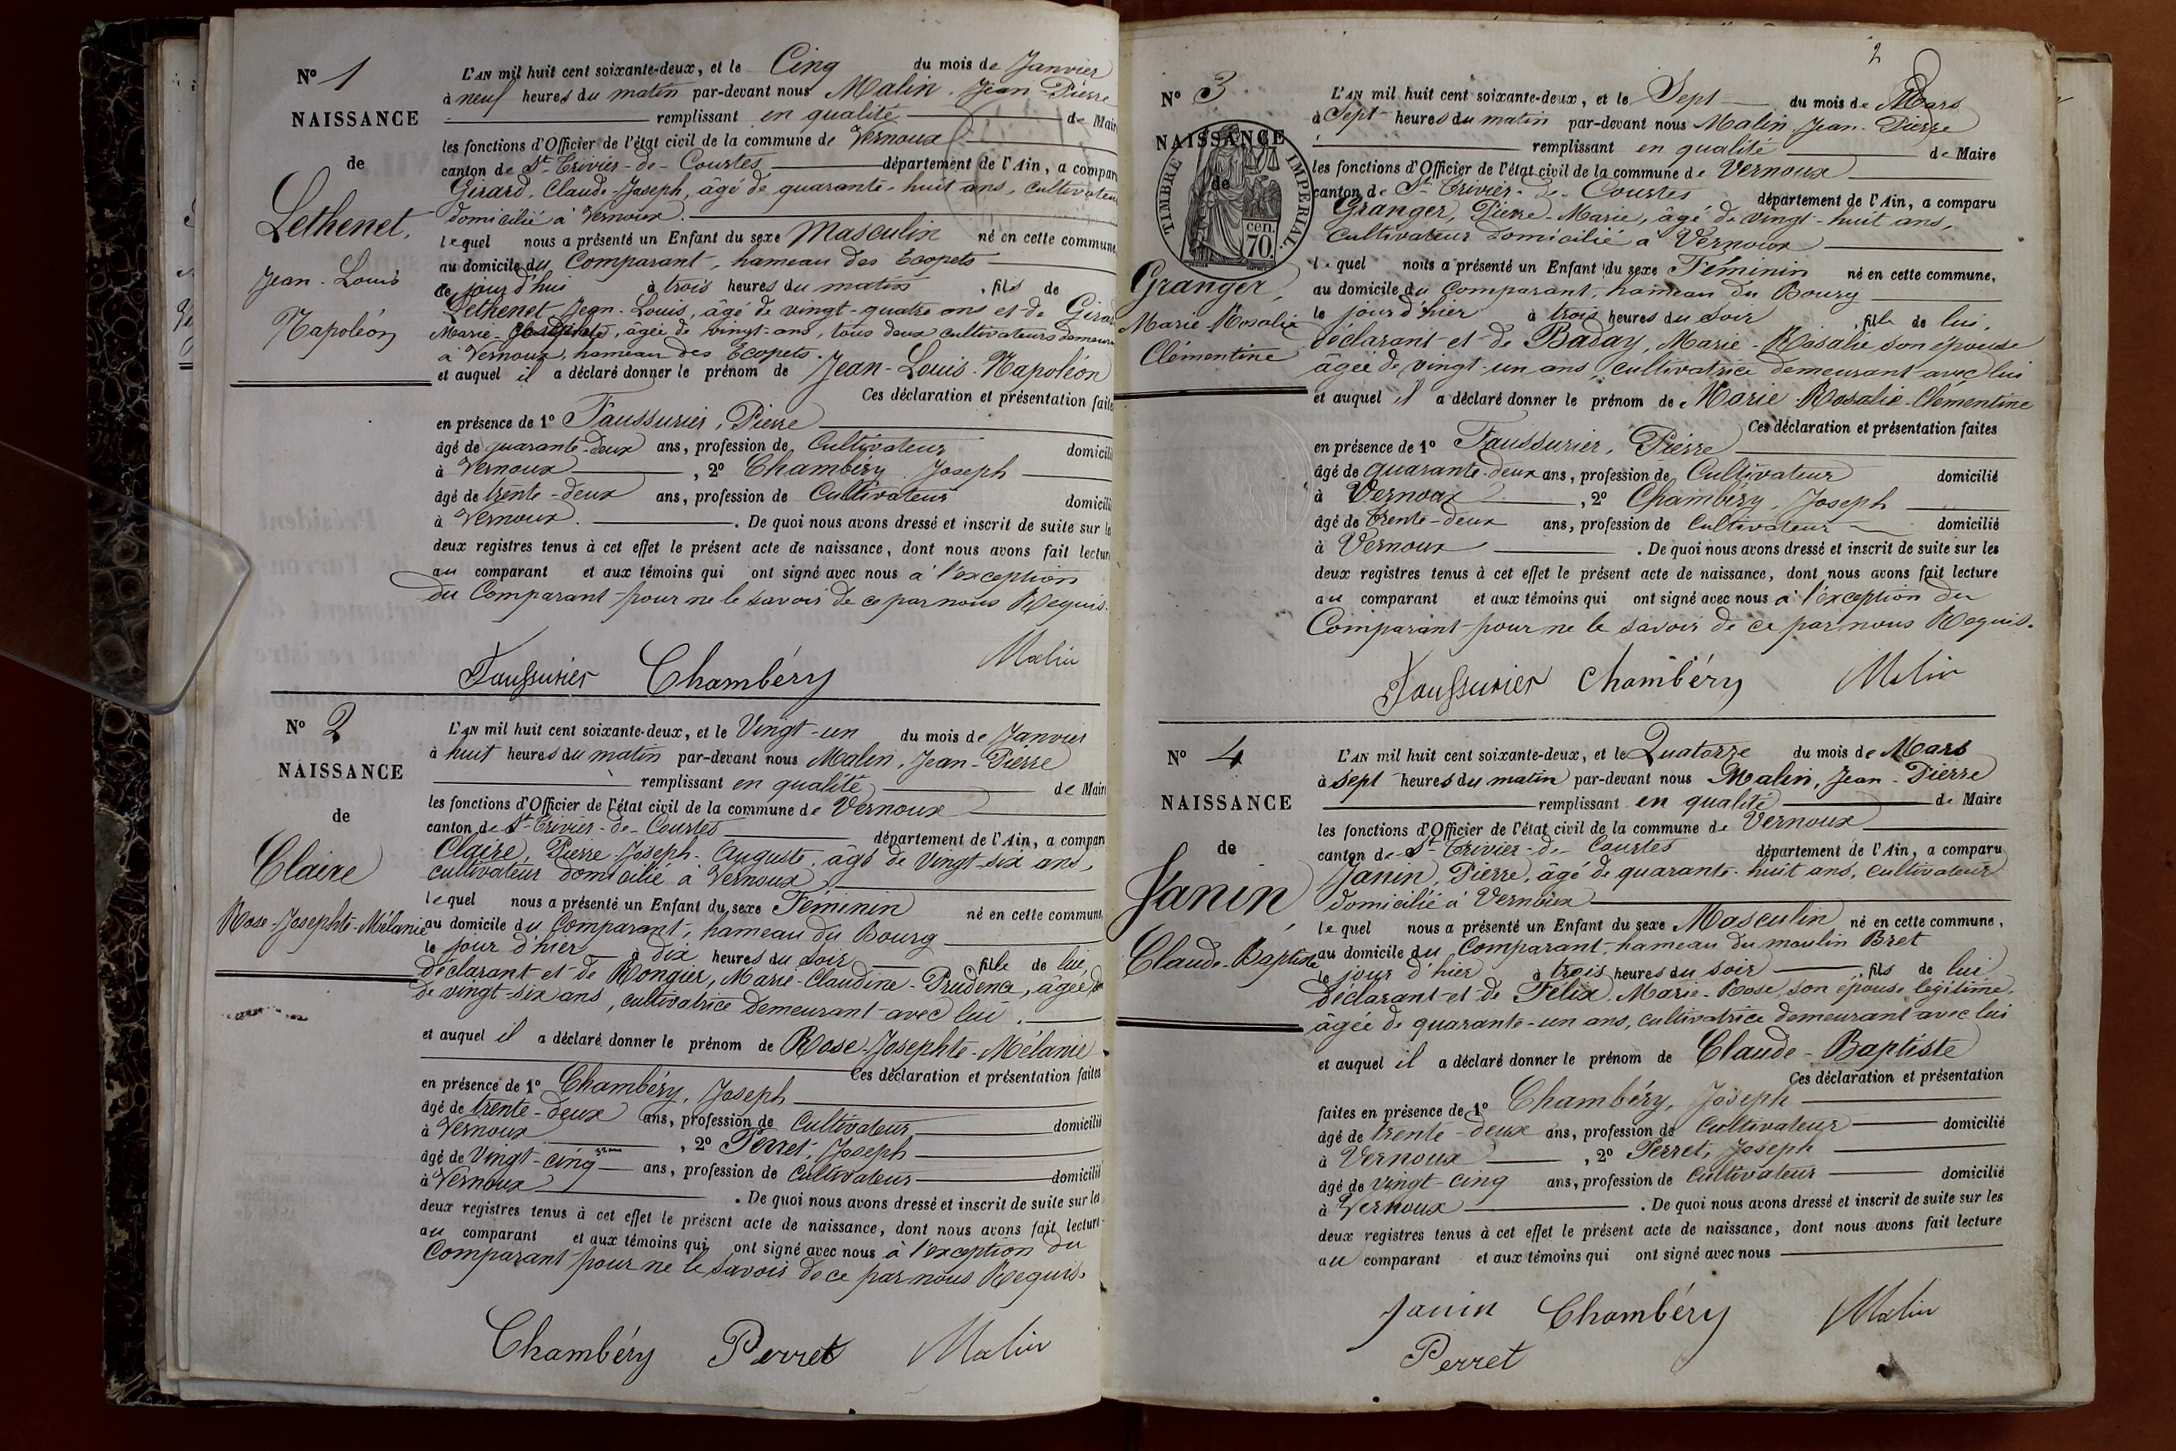 N° 1
NAISSANCE
de
Lethenet,
Jean-Louis
Napoléon
L'AN mil huit cent soixante-deux, et le Cinq du mois de Janvier
à neuf heures du matin par-devant nous Malin, Jean-Pierre
remplissant en qualité de Mair
les fonctions d'Officier de l'état civil de la commune de Vernoux
canton de St Trivier-de-Courtes département de l'Ain, a compar
Girard, Claude-Joseph, âgé de quarante-huit ans, cultivateur
domicilié à Vernoux.
lequel nous a présenté un Enfant du sexe Masculin né en cette commune
au domicile du Comparant, hameau des Ecopets
ce jourd'hui à trois heures du matin, fils de
Lethenet, Jean-Louis, âgé de vingt-quatre ans et de Girard
Marie-Josephte, âgée de vingt-ans, tous deux cultivateurs demeurant
à Vernoux, hameau des Ecopets.
et auquel il a déclaré donner le prénom de Jean-Louis-Napoléon
Ces déclaration et présentation faite
en présence de 1° Faussurier, Pierre
âgé de quarante-deux ans, profession de Cultivateur domicili
à Vernoux, 2° Chambéry Joseph
âgé de trente-deux ans, profession de Cultivateur domicili
à Vernoux. De quoi nous avons dressé et inscrit de suite sur le
deux registres tenus à cet effet le présent acte de naissance, dont nous avons fait lectur
au comparant et aux témoins qui ont signé avec nous à l'exception
du Comparant pour ne le savoir de ce par nous Requis.
Faussurier Chambéry Malin
N° 2
NAISSANCE
de
Claire
Rose-Josephte-Mélanie
L'AN mil huit cent soixante-deux, et le Vingt-un du mois de Janvier
à huit heures du matin par-devant nous Malin, Jean-Pierre
remplissant en qualité de Mair
les fonctions d'Officier de l'état civil de la commune de Vernoux
canton de St Trivier-de-Courtes département de l'Ain, a compar
Claire, Pierre-Joseph-Auguste, âgé de vingt-six ans,
cultivateur domicilié à Vernoux
lequel nous a présenté un Enfant du sexe Féminin né en cette commune,
au domicile du Comparant, hameau du Bourg
le jour d'hier à dix heures du soir fille de lui,
déclarant et de Rongier, Marie-Claudine-Prudence, âgée
de vingt-six ans, cultivatrice demeurant avec lui.
et auquel il a déclaré donner le prénom de Rose-Josephte-Mélanie
Ces déclaration et présentation faites
en présence de 1° Chambéry, Joseph
âgé de trente-deux ans, profession de Cultivateur domicilié
à Vernoux, 2° Perret, Joseph
âgé de Vingt-cinq ans, profession de Cultivateur domicilié
à Vernoux. De quoi nous avons dressé et inscrit de suite sur les
deux registres tenus à cet effet le présent acte de naissance, dont nous avons fait lecture
au comparant et aux témoins qui ont signé avec nous à l'exception du
Comparant pour ne le savoir de ce par nous Requis.
Chambéry Perret Malin
2
N° 3
NAISSANCE
de
TIMBRE IMPERIAL.
cen. 70.
Granger,
Marie Rosalie
Clémentine
L'AN mil huit cent soixante-deux, et le Sept du mois de Mars
à Sept heures du matin par-devant nous Malin Jean-Pierre
remplissant en qualité de Maire
les fonctions d'Officier de l'état civil de la commune de Vernoux
canton de St Trivier-de-Courtes département de l'Ain, a comparu
Granger, Pierre-Marie, âgé de vingt-huit ans,
Cultivateur domicilié à Vernoux
lequel nous a présenté un Enfant du sexe Féminin né en cette commune,
au domicile du Comparant, hameau du Bourg
le jour d'hier à trois heures du soir, fille de lui,
déclarant et de Baday, Marie-Rosalie son épouse
âgée de vingt-un ans, cultivatrice demeurant avec lui
et auquel il a déclaré donner le prénom de Marie Rosalie-Clémentine
Ces déclaration et présentation faites
en présence de 1° Faussurier, Pierre
âgé de quarante-deux ans, profession de Cultivateur domicilié
à Vernoux, 2° Chambéry, Joseph
âgé de trente-deux ans, profession de Cultivateur domicilié
à Vernoux. De quoi nous avons dressé et inscrit de suite sur les
deux registres tenus à cet effet le présent acte de naissance, dont nous avons fait lecture
au comparant et aux témoins qui ont signé avec nous à l'exception du
Comparant pour ne le savoir de ce par nous Requis.
Faussurier Chambéry Malin
N° 4
NAISSANCE
de
Janin
Claude-Baptiste
L'AN mil huit cent soixante-deux, et le Quatorze du mois de Mars
à sept heures du matin par-devant nous Malin, Jean-Pierre
remplissant en qualité de Maire
les fonctions d'Officier de l'état civil de la commune de Vernoux
canton de St Trivier-de-Courtes département de l'Ain, a comparu
Janin, Pierre, âgé de quarante-huit ans, cultivateur
domicilié à Vernoux
lequel nous a présenté un Enfant du sexe Masculin né en cette commune,
au domicile du Comparant, hameau du moulin Bret
le jour d'hier à trois heures du soir, fils de lui
déclarant et de Félix Marie-Rose, son épouse légitime
âgée de quarante-un ans, cultivatrice demeurant avec lui
et auquel il a déclaré donner le prénom de Claude-Baptiste
Ces déclaration et présentation
faites en présence de 1° Chambéry, Joseph
âgé de trente-deux ans, profession de Cultivateur domicilié
à Vernoux, 2° Perret, Joseph
âgé de vingt-cinq ans, profession de Cultivateur domicilié
à Vernoux. De quoi nous avons dressé et inscrit de suite sur les
deux registres tenus à cet effet le présent acte de naissance, dont nous avons fait lecture
au comparant et aux témoins qui ont signé avec nous
Janin Chambéry Malin
Perret